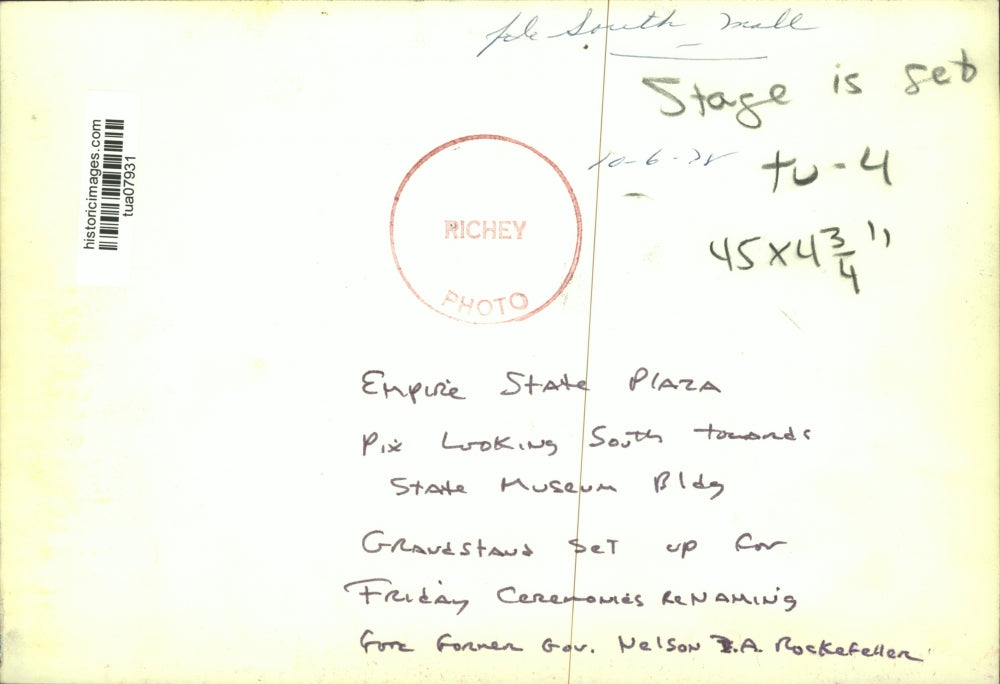 file South Mall
Stage is set
10-6-78
tu-4
45 x 4 3/4"
historicimages.com
tua07931
RICHEY
PHOTO
Empire State Plaza
Pix Looking South towards
State Museum Bldg
Grandstand set up for
Friday Ceremonies renaming
for former Gov. Nelson A. Rockefeller